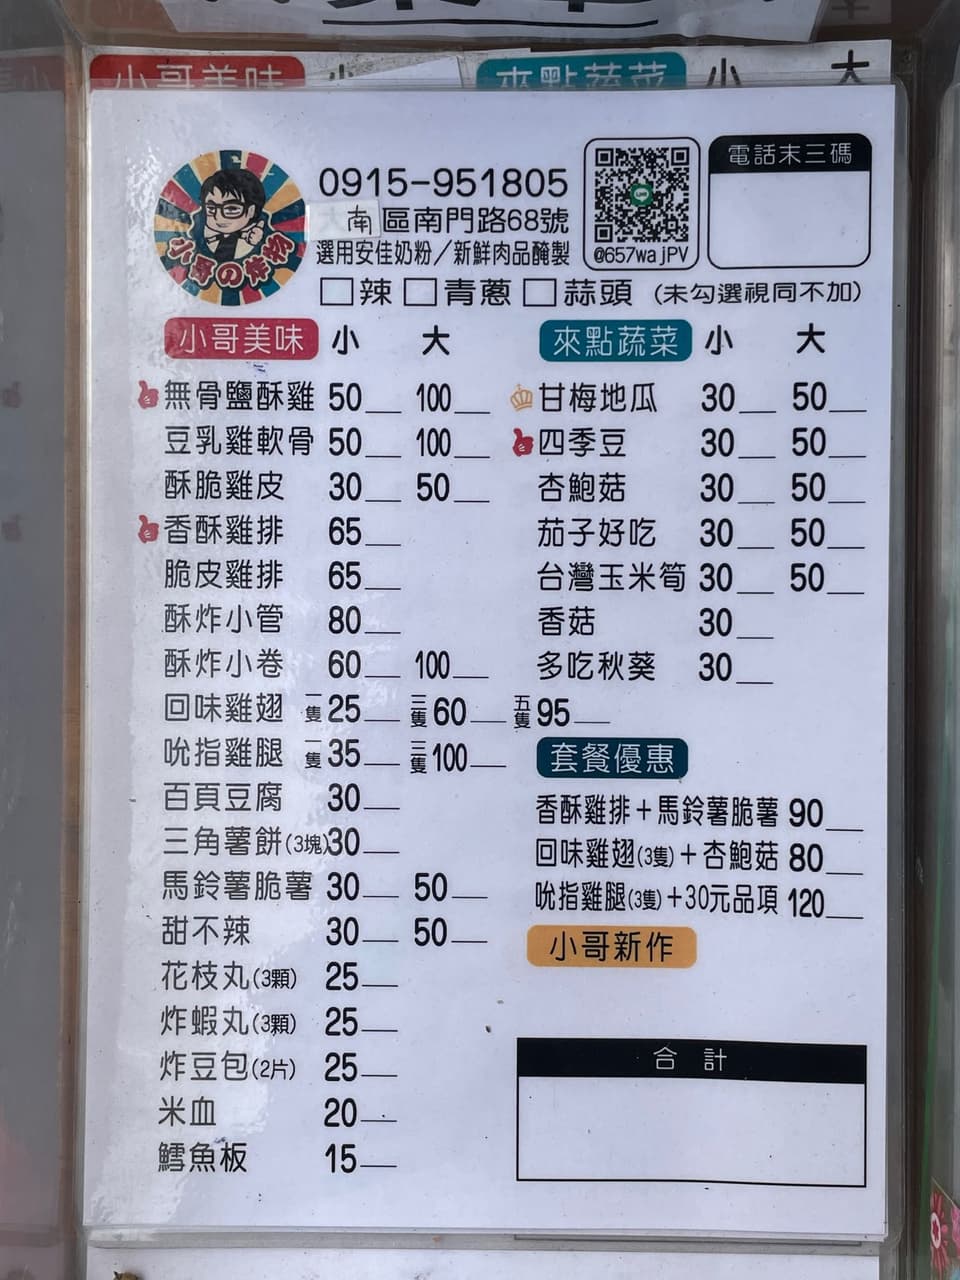 小哥美味 小 來點蔬菜 小 大
小哥の炸物
0915-951805
南區南門路68號
選用安佳奶粉/新鮮肉品醃製
LINE
@657wajPV
電話末三碼
□辣 □青蔥 □蒜頭 (未勾選視同不加)
小哥美味 小 大
無骨鹽酥雞 50__ 100__
豆乳雞軟骨 50__ 100__
酥脆雞皮 30__ 50__
香酥雞排 65__
脆皮雞排 65__
酥炸小管 80__
酥炸小卷 60__ 100__
回味雞翅 一隻25__ 三隻60__ 五隻95__
吮指雞腿 一隻35__ 三隻100__
百頁豆腐 30__
三角薯餅(3塊)30__
馬鈴薯脆薯 30__ 50__
甜不辣 30__ 50__
花枝丸(3顆) 25__
炸蝦丸(3顆) 25__
炸豆包(2片) 25__
米血 20__
鱈魚板 15__
來點蔬菜 小 大
甘梅地瓜 30__ 50__
四季豆 30__ 50__
杏鮑菇 30__ 50__
茄子好吃 30__ 50__
台灣玉米筍 30__ 50__
香菇 30__
多吃秋葵 30__
套餐優惠
香酥雞排+馬鈴薯脆薯 90__
回味雞翅(3隻)+杏鮑菇 80__
吮指雞腿(3隻)+30元品項 120__
小哥新作
合計